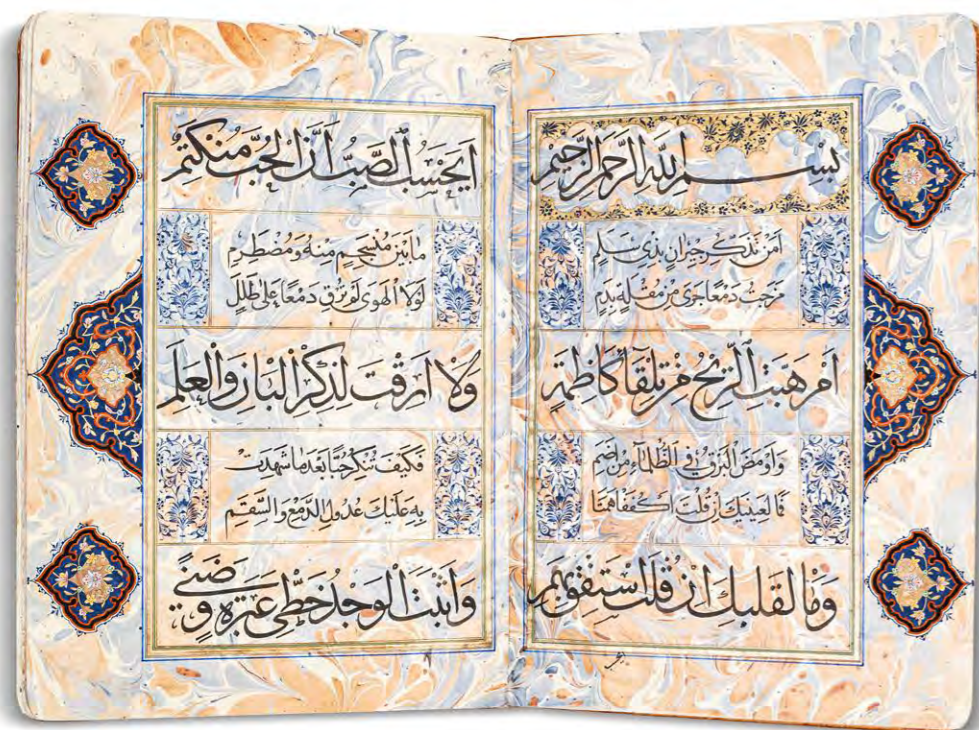 بسم الله الرحمن الرحيم
امن تذكر جيران بذي سلم
مزجت دمعا جرى من مقلة بدم
ام هبت الريح من تلقاء كاظمة
واومض البرق في الظلماء من اضم
فما لعينيك ان قلت اكففا همتا
وما لقلبك ان قلت استفق يهم
ايحسب الصب ان الحب منكتم
ما بين منسجم منه ومضطرم
لولا الهوى لم ترق دمعا على طلل
ولا ارقت لذكر البان والعلم
فكيف تنكر حبا بعد ما شهدت
به عليك عدول الدمع والسقم
واثبت الوجد خطي عبرة وضنى